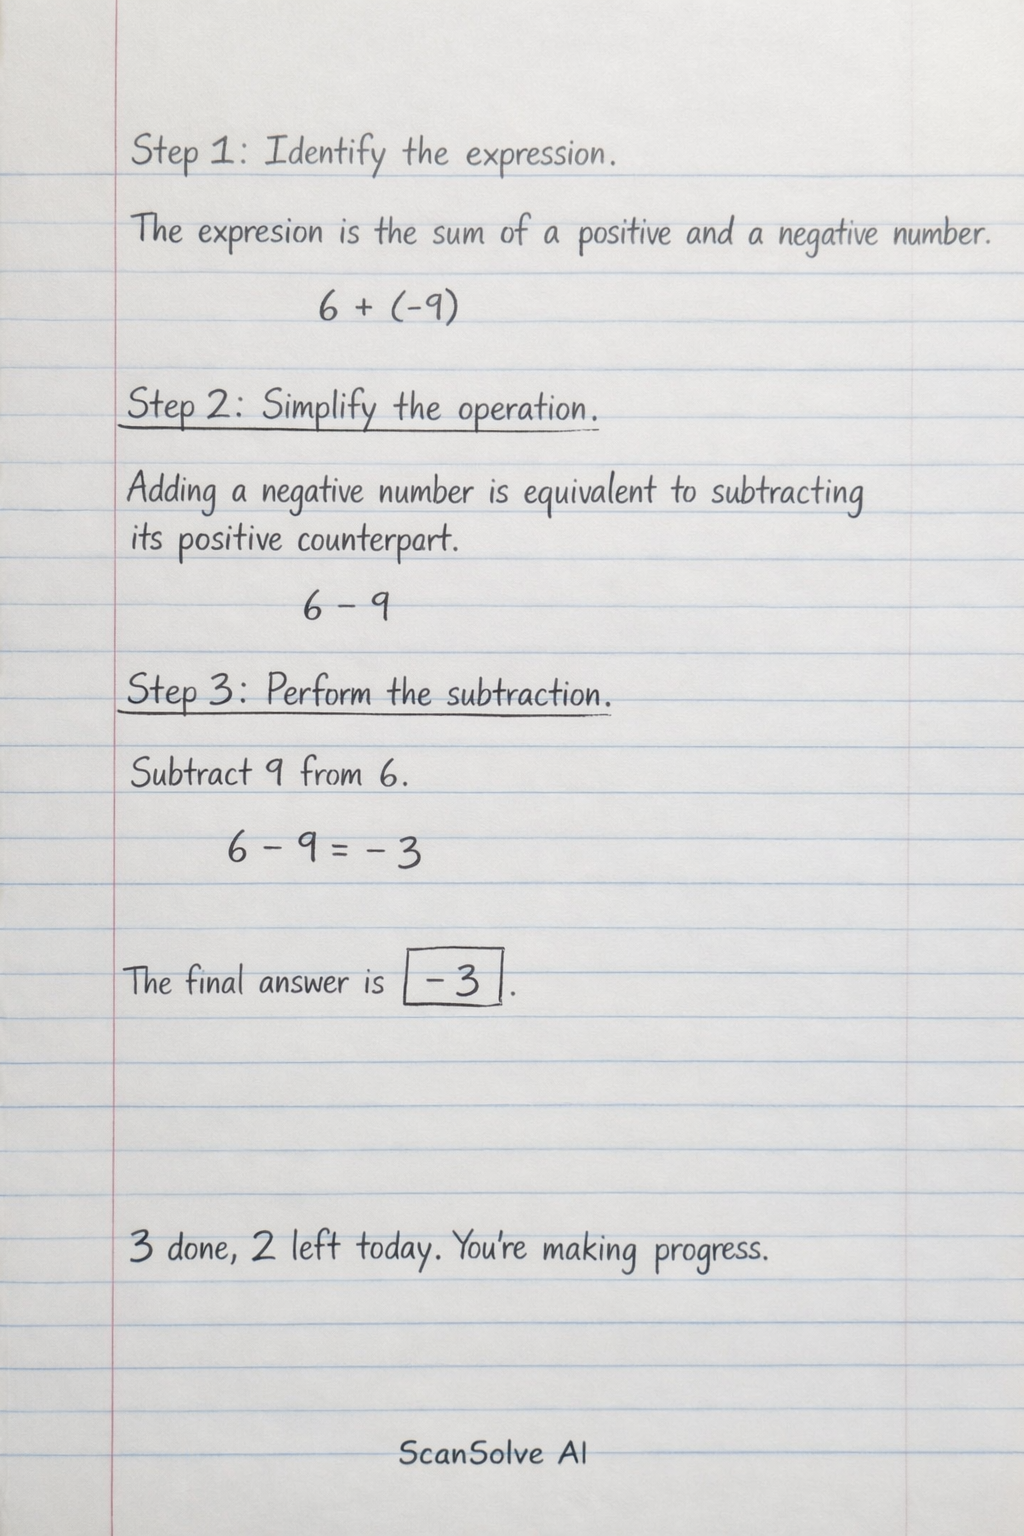 Step 1: Identify the expression.
The expresion is the sum of a positive and a negative number.
6 + (-9)
Step 2: Simplify the operation.
Adding a negative number is equivalent to subtracting
its positive counterpart.
6 - 9
Step 3: Perform the subtraction.
Subtract 9 from 6.
6 - 9 = - 3
The final answer is - 3.
3 done, 2 left today. You're making progress.
ScanSolve AI